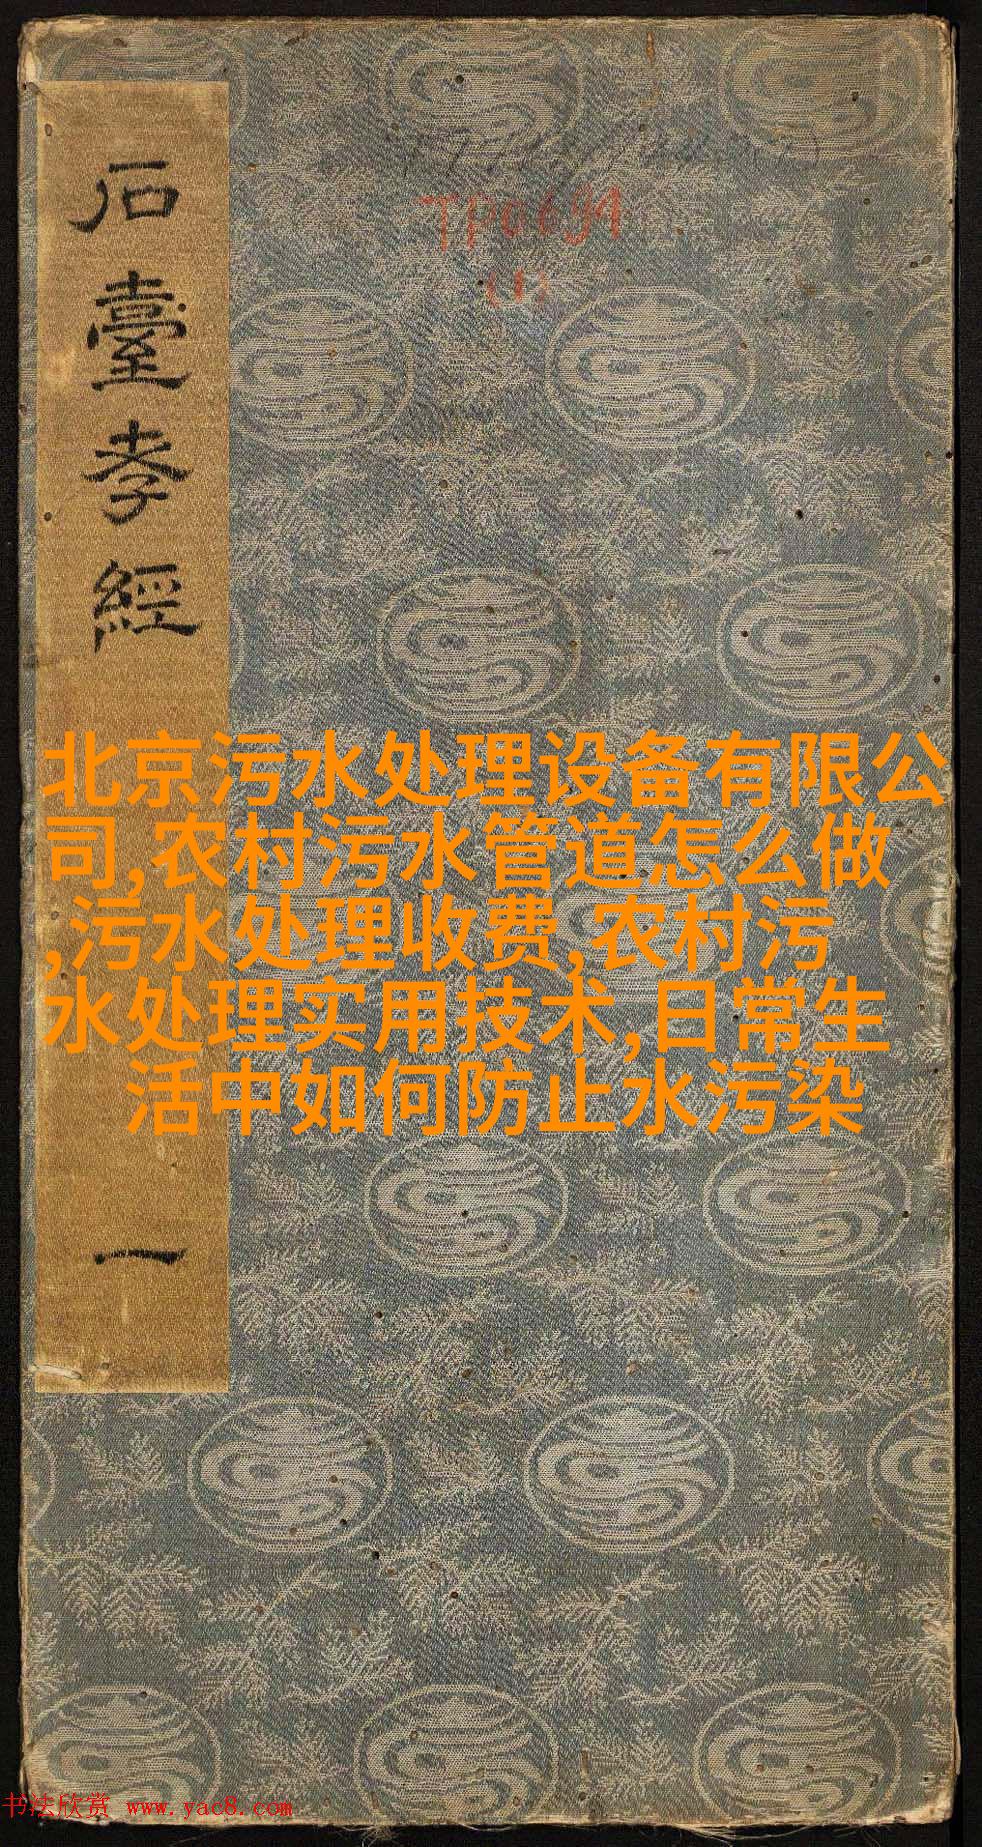 石臺孝經
一
TP0691
(1)
北京污水处理设备有限公
司,农村污水管道怎么做
,污水处理收费,农村污
水处理实用技术,日常生
活中如何防止水污染
书法欣赏 www.yac8.com